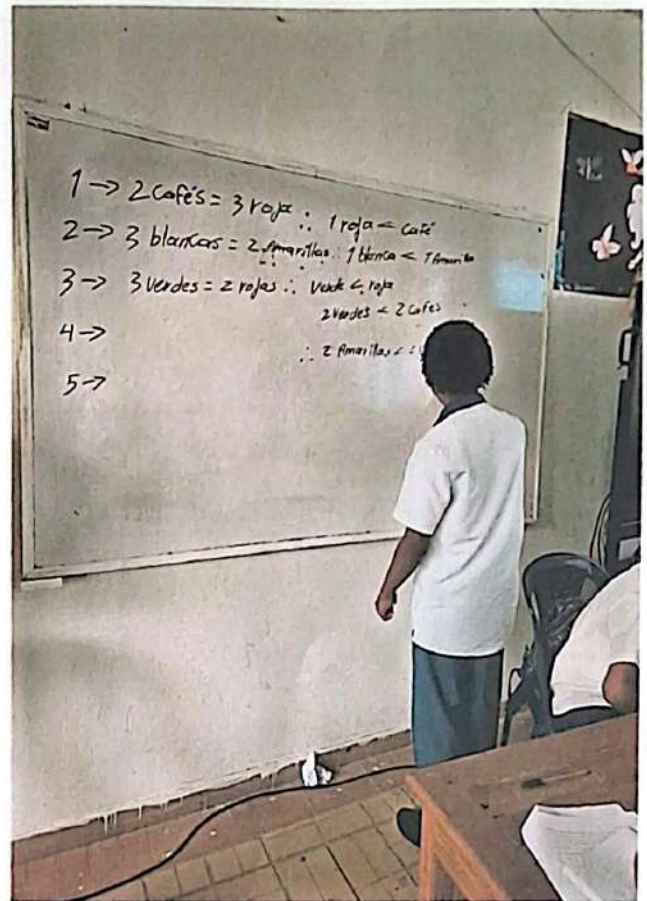 1 → 2 Cafés = 3 roja ∴ 1 roja < café
2 → 3 blancas = 2 Amarillas ∴ 1 blanca < 1 Amarilla
3 → 3 verdes = 2 rojas ∴ verde < roja
2 verdes < 2 cafés
4 →
∴ 2 Amarillas <
5 →